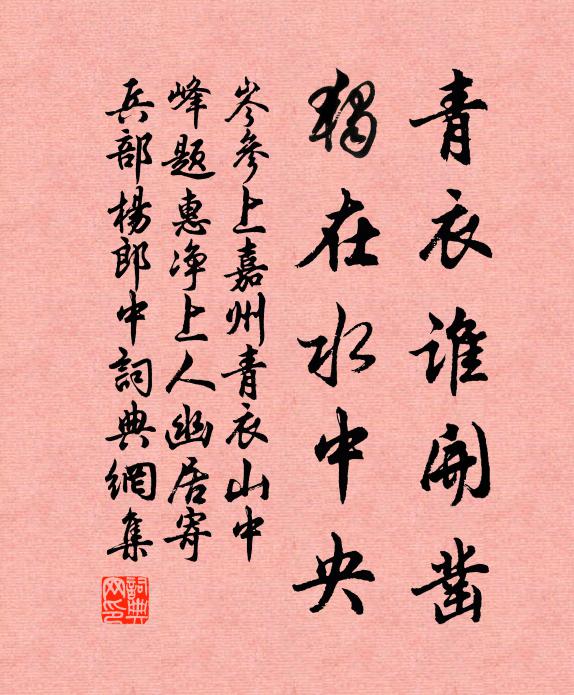 青衣誰開鑿
獨在水中央
岑參上嘉州青衣山中
峰題惠淨上人幽居寄
兵部楊郎中詞典網集
詞典
网印